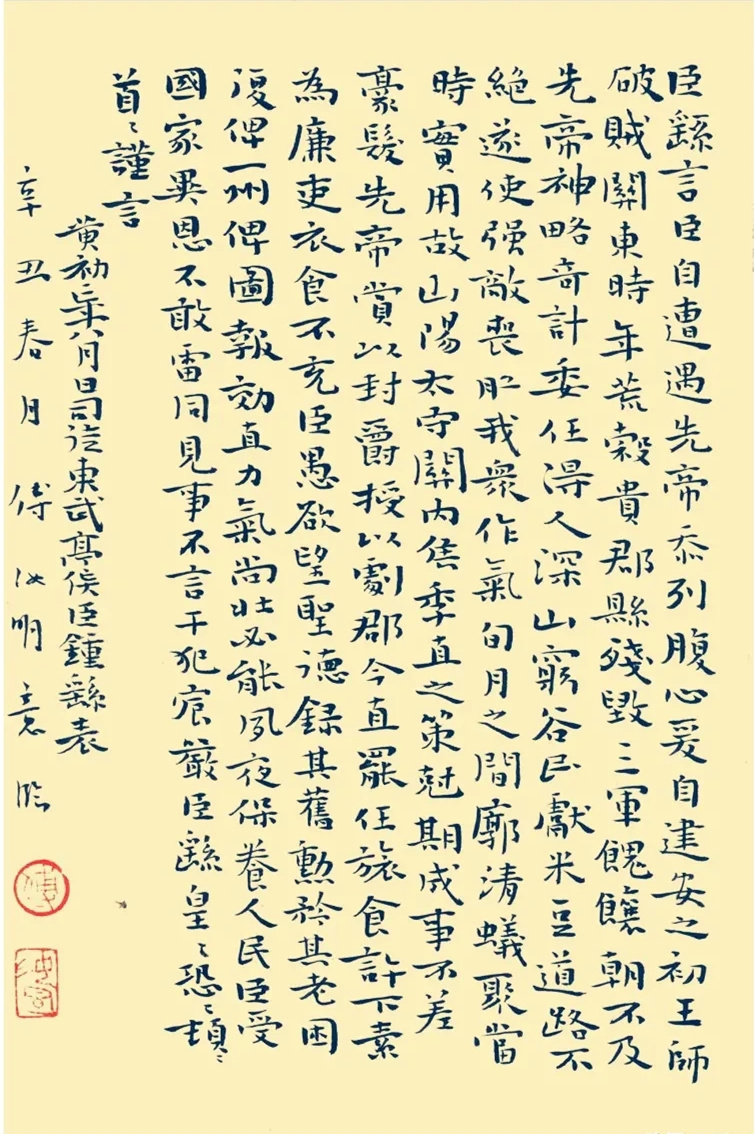 臣繇言臣自遭遇先帝忝列腹心爰自建安之初王師
破賊關東時年荒穀貴郡縣殘毀三軍餽饟朝不及
先帝神略奇計委任得人深山窮谷民獻米豆道路不
絕遂使强敵喪胆我衆作氣旬月之間廓清蟻聚當
時實用故山陽太守關內侯季直之策尅期成事不差
豪髮先帝賞以封爵授以劇郡今直罷任旅食許下素
為廉吏衣食不充臣愚欲望聖德録其舊勳矜其老困
復俾一州俾圖報効直力氣尚壯必能夙夜保養人民臣受
國家異恩不敢雷同見事不言干犯宸嚴臣繇皇〻恐〻頓〻
首〻謹言
黃初二年八月日司徒東武亭侯臣鍾繇表
辛丑春月傅汝明意臨
傅